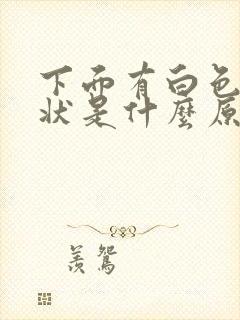 下面有白色
状是什麼原
羨鴛